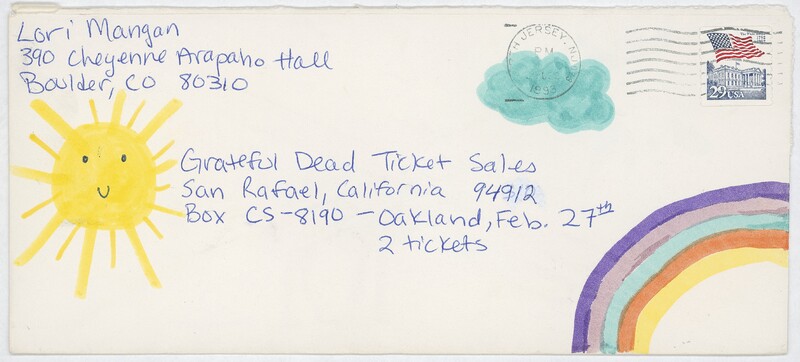 Lori Mangan
390 Cheyenne Arapaho Hall
Boulder, CO 80310
TH JERSEY, NJ
PM
1993
29 USA
Grateful Dead Ticket Sales
San Rafael, California 94912
Box CS-8190 - Oakland, Feb. 27th
2 tickets